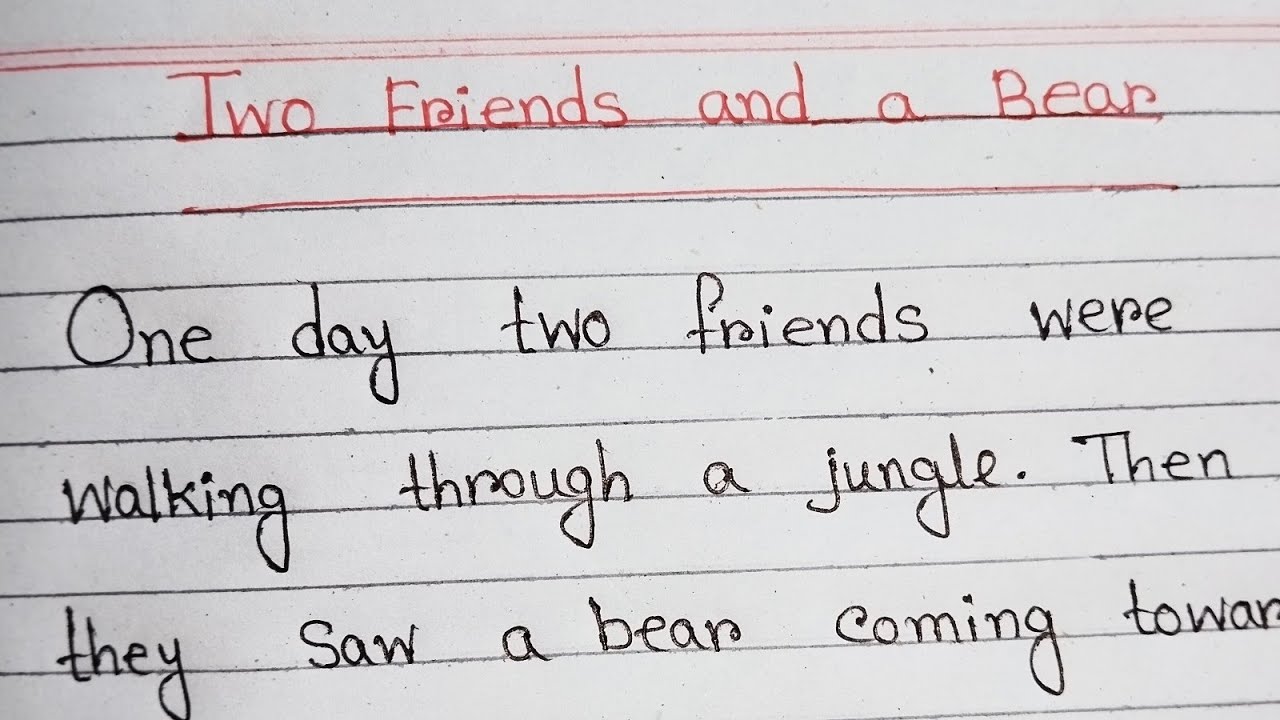 Two Friends and a Bear
One day two friends were
walking through a jungle. Then
they saw a bear coming towar